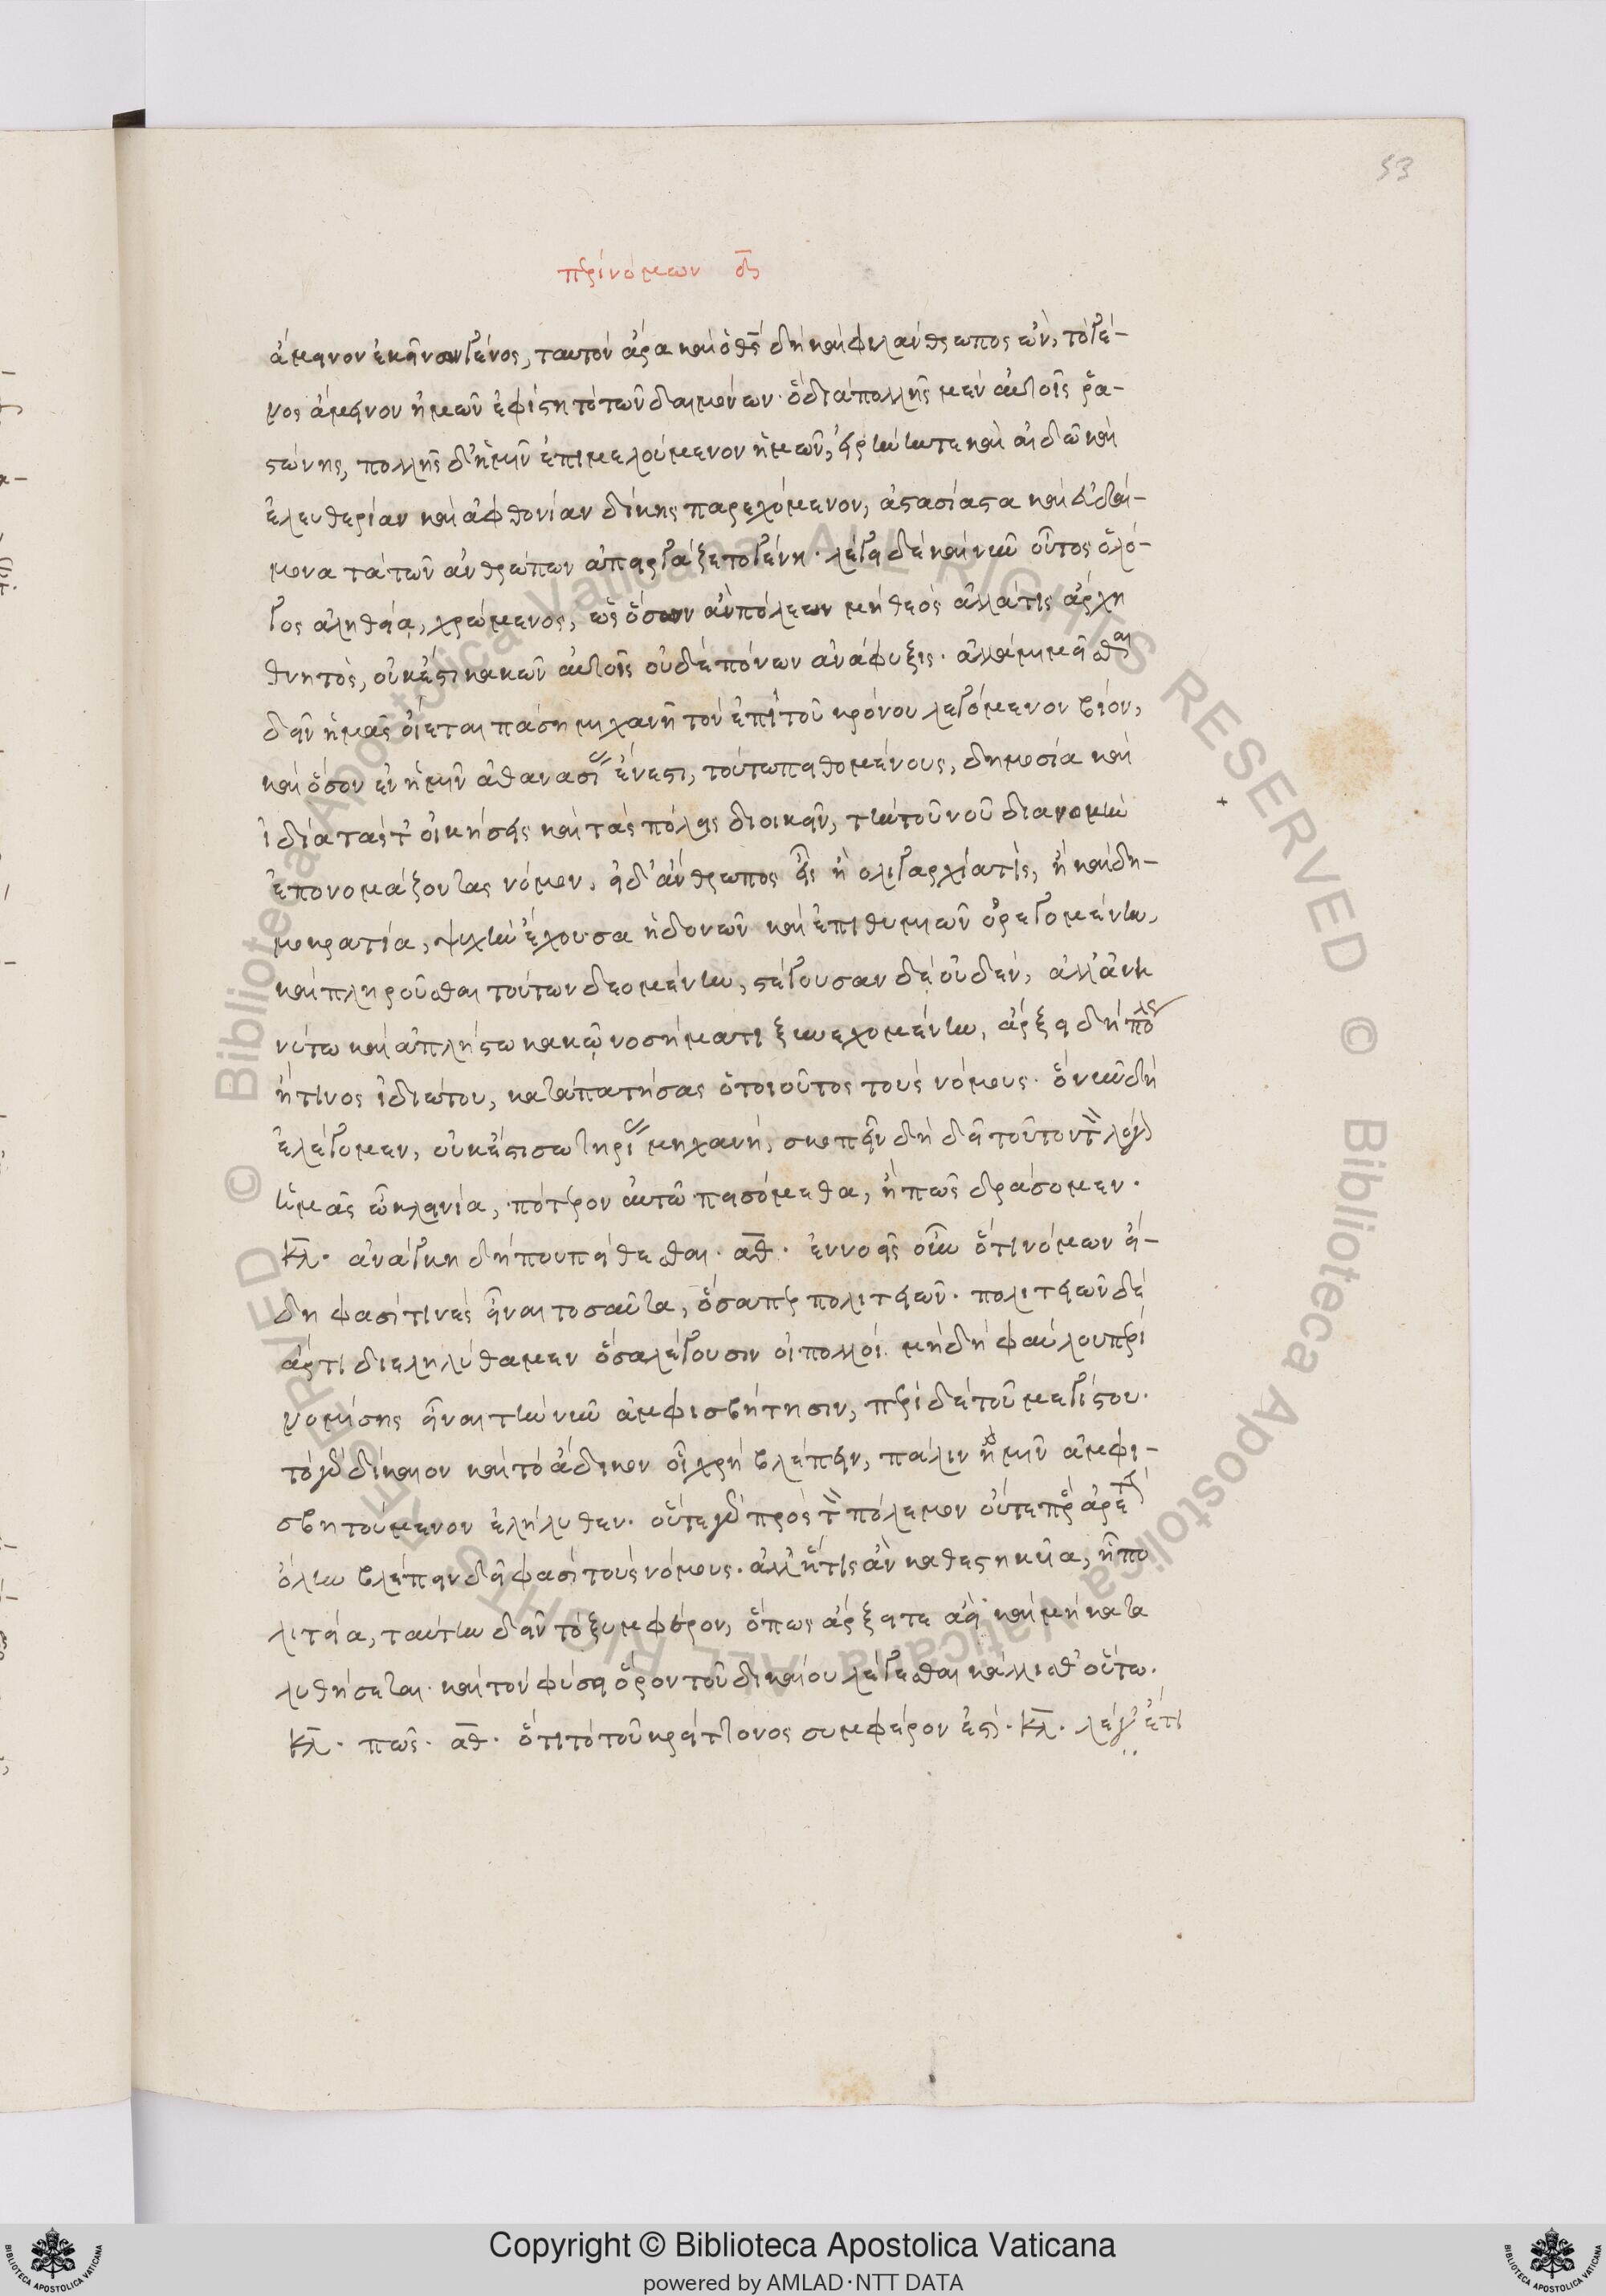 53
περὶ νόμων δ̅
ἄμεινον ἐκείνων γένος, ταυτὸν ἄρα καὶ ὁ θς̅ δὴ καὶ φιλάνθρωπος ὢν, τὸ γέ-
νος ἄμεινον ἡμῶν ἐφίστη τὸ τῶν δαιμόνων· ὃ διὰ πολλῆς μὲν αὐτοῖς ῥα-
στώνης, πολλῆς δ' ἡμῖν ἐπιμελούμενον ἡμῶν, εἰρήνην τε καὶ αἰδῶ καὶ
ἐλευθερίαν καὶ ἀφθονίαν δίκης παρεχόμενον, ἀστασίαστα καὶ εὐδαί-
μονα τὰ τῶν ἀνθρώπων ἀπειργάζετο γένη· λέγει δὲ καὶ νῦν οὗτος ὁ λό-
γος ἀληθείᾳ, χρώμενος, ὡς ὅσων ἂν πόλεων μὴ θεὸς ἀλλά τις ἄρχῃ
θνητὸς, οὐκ ἔστι κακῶν αὐτοῖς οὐδὲ πόνων ἀνάφυξις· ἀλλὰ μιμεῖσθαι
δεῖν ἡμᾶς οἴεται πάσῃ μηχανῇ τὸν ἐπὶ τοῦ κρόνου λεγόμενον βίον,
καὶ ὅσον ἐν ἡμῖν ἀθανασίας ἔνεστι, τούτω πειθομένους, δημοσία καὶ
ἰδία τάς τ' οἰκήσεις καὶ τὰς πόλεις διοικεῖν, τὴν τοῦ νοῦ διανομὴν
ἐπονομάζοντας νόμον. εἰ δ' ἄνθρωπος εἷς ἢ ὀλιγαρχία τὶς, ἢ καὶ δη-
μοκρατία, ψυχὴν ἔχουσα ἡδονῶν καὶ ἐπιθυμιῶν ὀρεγομένην,
καὶ πληροῦσθαι τούτων δεομένην, στέγουσαν δὲ οὐδὲν, ἀλλ' ἀνη
νύτω καὶ ἀπλήστω κακῷ νοσήματι ξυνεχομένην, ἄρξει δὴ πόλεως
ἤ τινος ἰδιώτου, καταπατήσας ὁ τοιοῦτος τοὺς νόμους· ὃ νῦν δὴ
ἐλέγομεν, οὐκ ἔστι σωτηρίας μηχανή, σκοπεῖν δὴ δεῖ τοῦτον τὸν λόγον
ἡμᾶς ὦ κλεινία, πότερον αὐτῶ πεισόμεθα, ἢ πῶς δράσομεν·
κλ̅. ἀνάγκη δήπου πείθεσθαι· αθ̅. ἐννοεῖς οὖν ὅτι νόμων εἴ-
δη φασί τινες εἶναι τοσαῦτα, ὅσαπερ πολιτειῶν· πολιτειῶν δὲ
ἄρτι διεληλύθαμεν ὅσα λέγουσιν οἱ πολλοί· μὴ δὴ φαύλου περὶ
νομίσης εἶναι τὴν νῦν ἀμφισβήτησιν, περὶ δὲ τοῦ μεγίστου·
τὸ γὰρ δίκαιον καὶ τὸ ἄδικον οἷ χρὴ βλέπειν, πάλιν ἡμῖν ἀμφι-
σβητούμενον ἐλήλυθεν· οὔτε γὰρ πρὸς τὸν πόλεμον οὔτε πρὸς ἀρετὴν
ὅλην βλέπειν δεῖ φασὶ τοὺς νόμους. ἀλλ' ἥτις ἂν καθεστηκυῖα, ἦ πο
λιτεία, ταύτην δεῖν τὸ ξυμφέρον, ὅπως ἄρξει τε ἀεὶ καὶ μὴ κατα
λυθήσεται· καὶ τὸν φύσει ὅρον τοῦ δικαίου λέγεσθαι κάλλισθ' οὕτω.
κλ̅. πῶς· αθ̅. ὅτι τὸ τοῦ κρείττονος συμφέρον ἐστί· κλ̅. λέγ' ἔτι